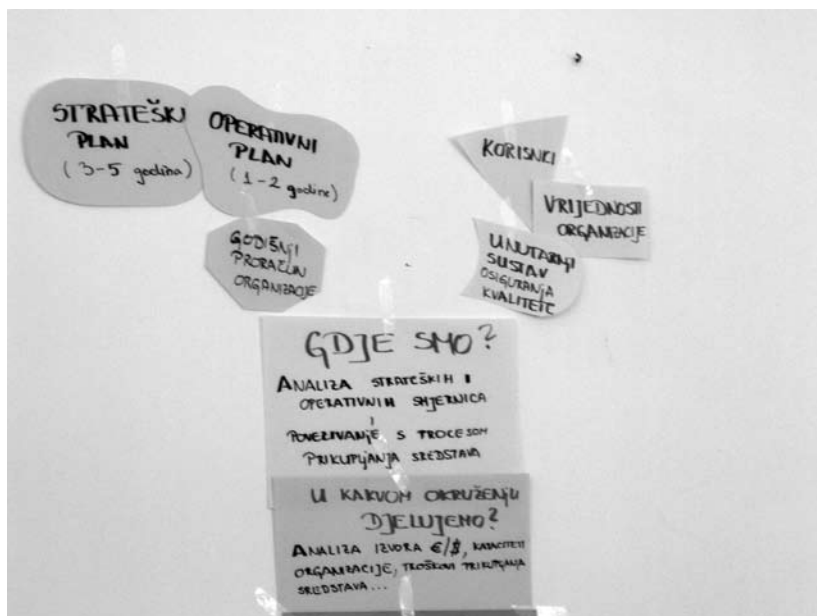 STRATEŠKI
PLAN
(3-5 godina)
OPERATIVNI
PLAN
(1-2 godine)
GODIŠNJI
PRORAČUN
ORGANIZACIJE
KORISNICI
VRIJEDNOSTI
ORGANIZACIJE
UNUTARNJI
SUSTAV
OSIGURANJA
KVALITETE
GDJE SMO?
ANALIZA STRATEŠKIH I
OPERATIVNIH SMJERNICA
I
POVEZIVANJE S PROCESOM
PRIKUPLJANJA SREDSTAVA
U KAKVOM OKRUŽENJU
DJELUJEMO?
ANALIZA IZVORA €/$, KAPACITETI
ORGANIZACIJE, TROŠKOVI PRIKUPLJANJA
SREDSTAVA...